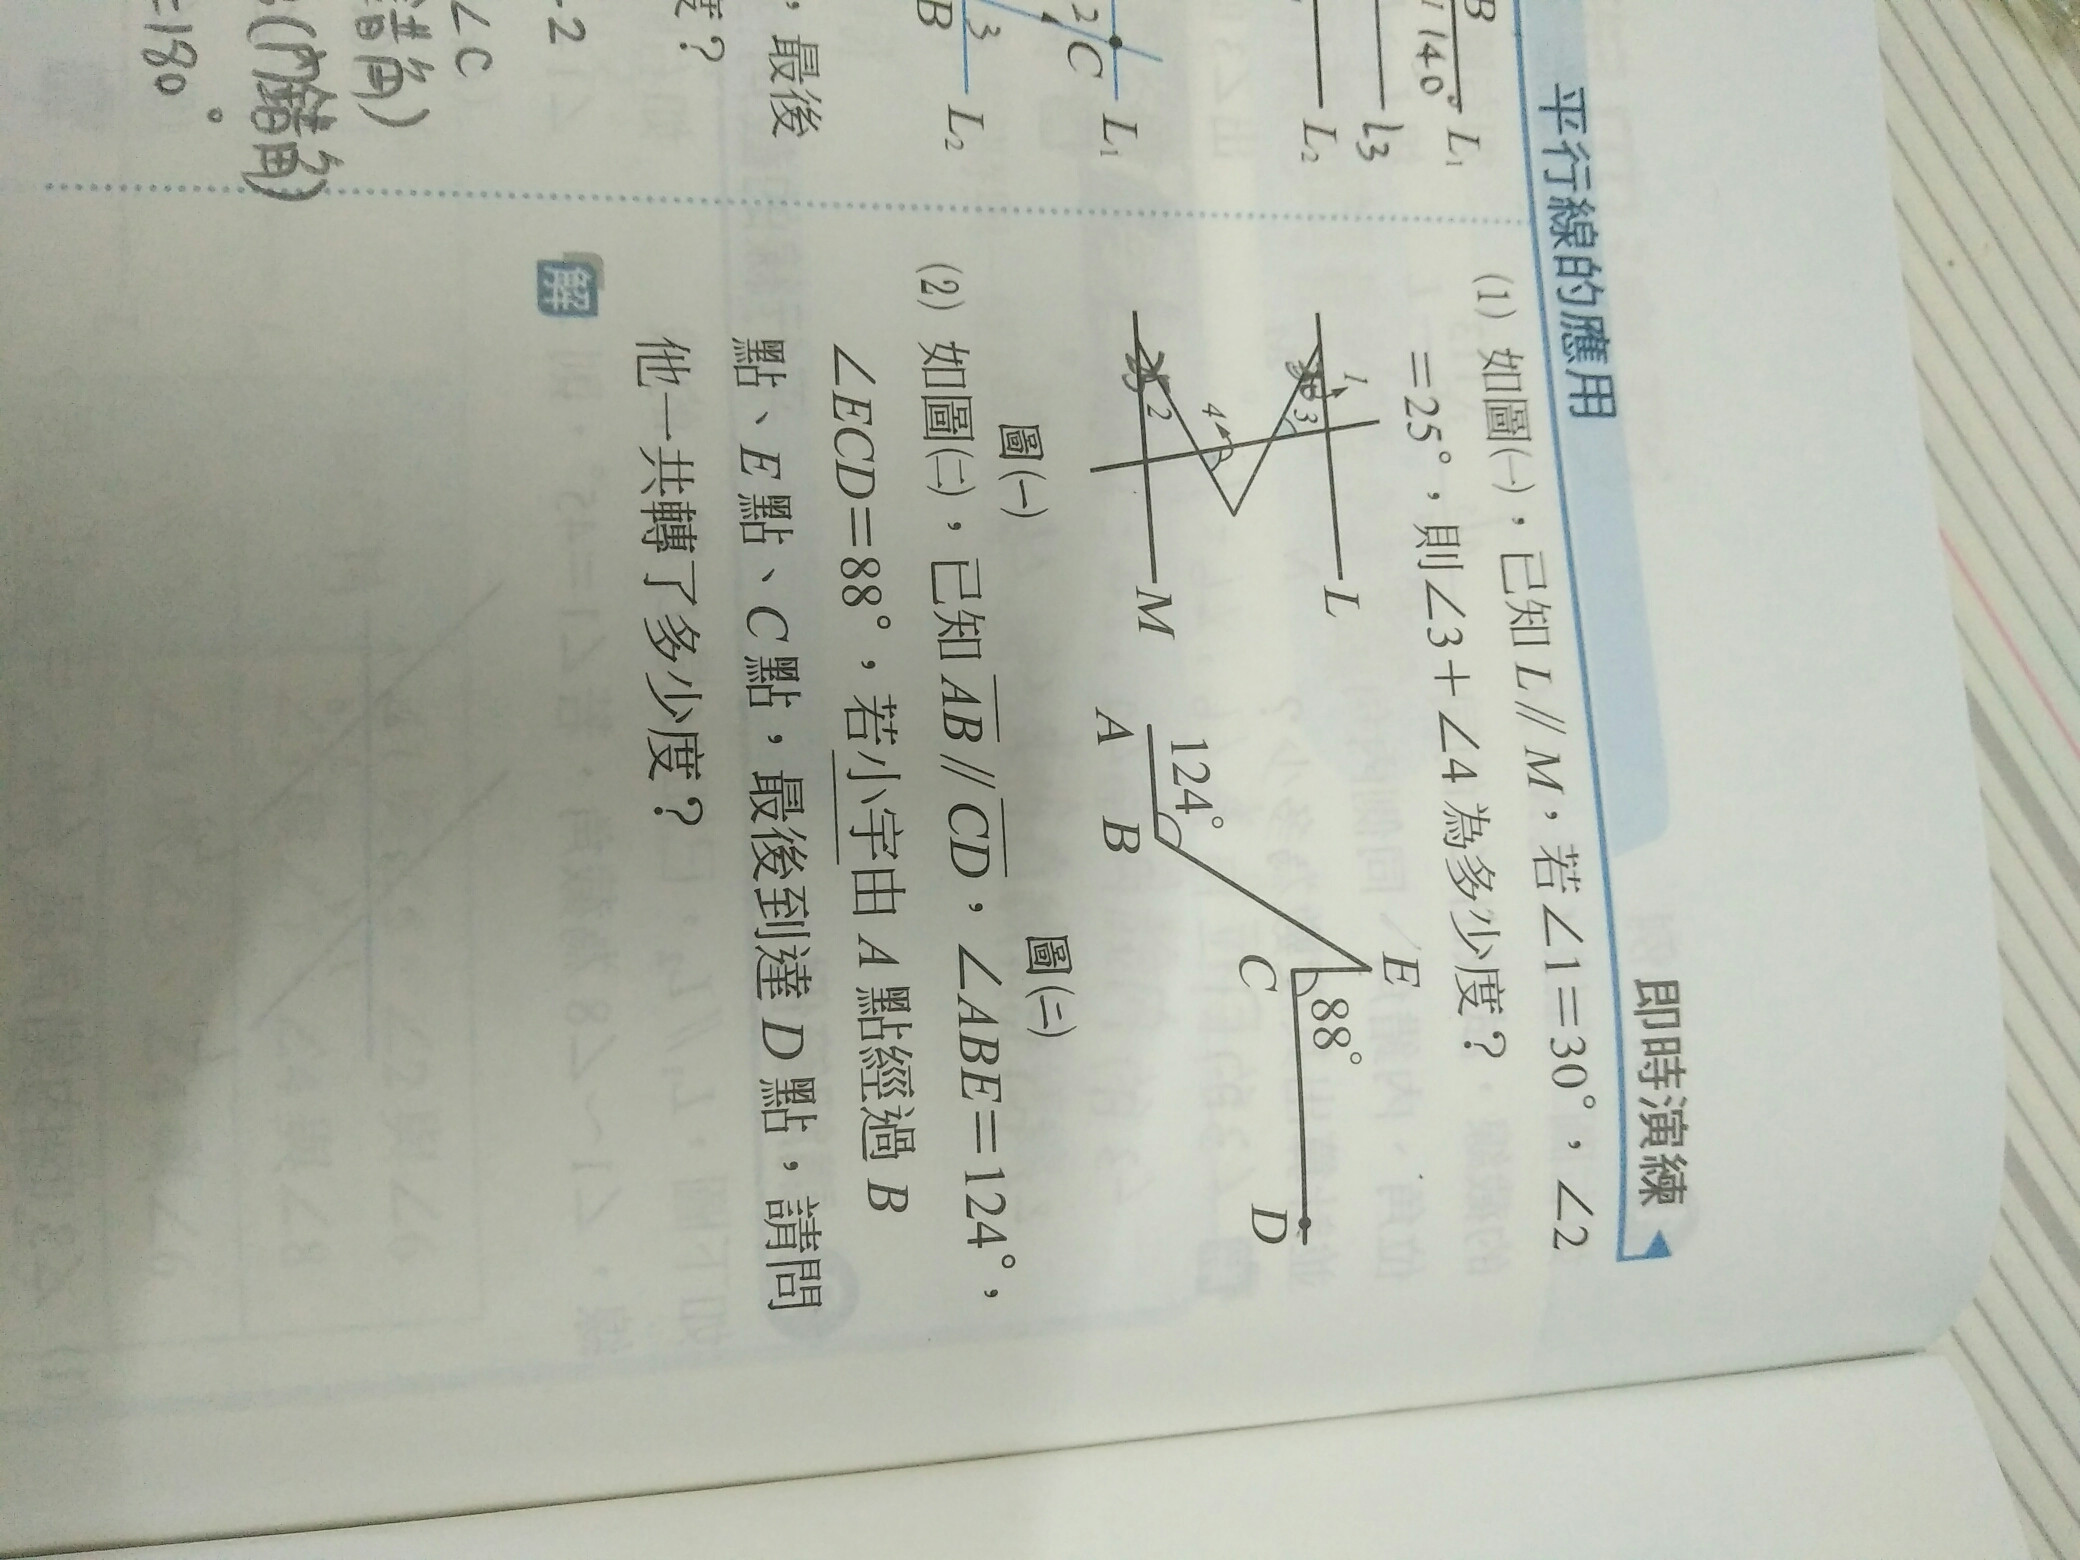 即時演練
平行線的應用
(1) 如圖(一)，已知 L∥M，若∠1＝30°，∠2
＝25°，則∠3＋∠4 為多少度？
1
3
L
4
2
M
E
88°
C
D
124°
A
B
圖(一)
圖(二)
(2) 如圖(二)，已知 AB∥CD，∠ABE＝124°，
∠ECD＝88°，若小宇由 A 點經過 B
點、E 點、C 點，最後到達 D 點，請問
他一共轉了多少度？
解
B
140°
L₁
L3
L₂
2
C
L₁
3
B
L₂
，最後
度？
-2
∠C
錯角)
(內錯角)
=180°